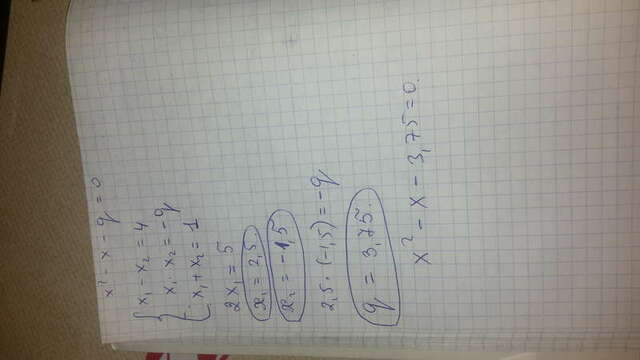 x² - x - q = 0
x₁ - x₂ = 4
x₁ · x₂ = -q
x₁ + x₂ = 1
2x₁ = 5
x₁ = 2,5
x₂ = -1,5
2,5 · (-1,5) = -q
q = 3,75.
x² - x - 3,75 = 0.